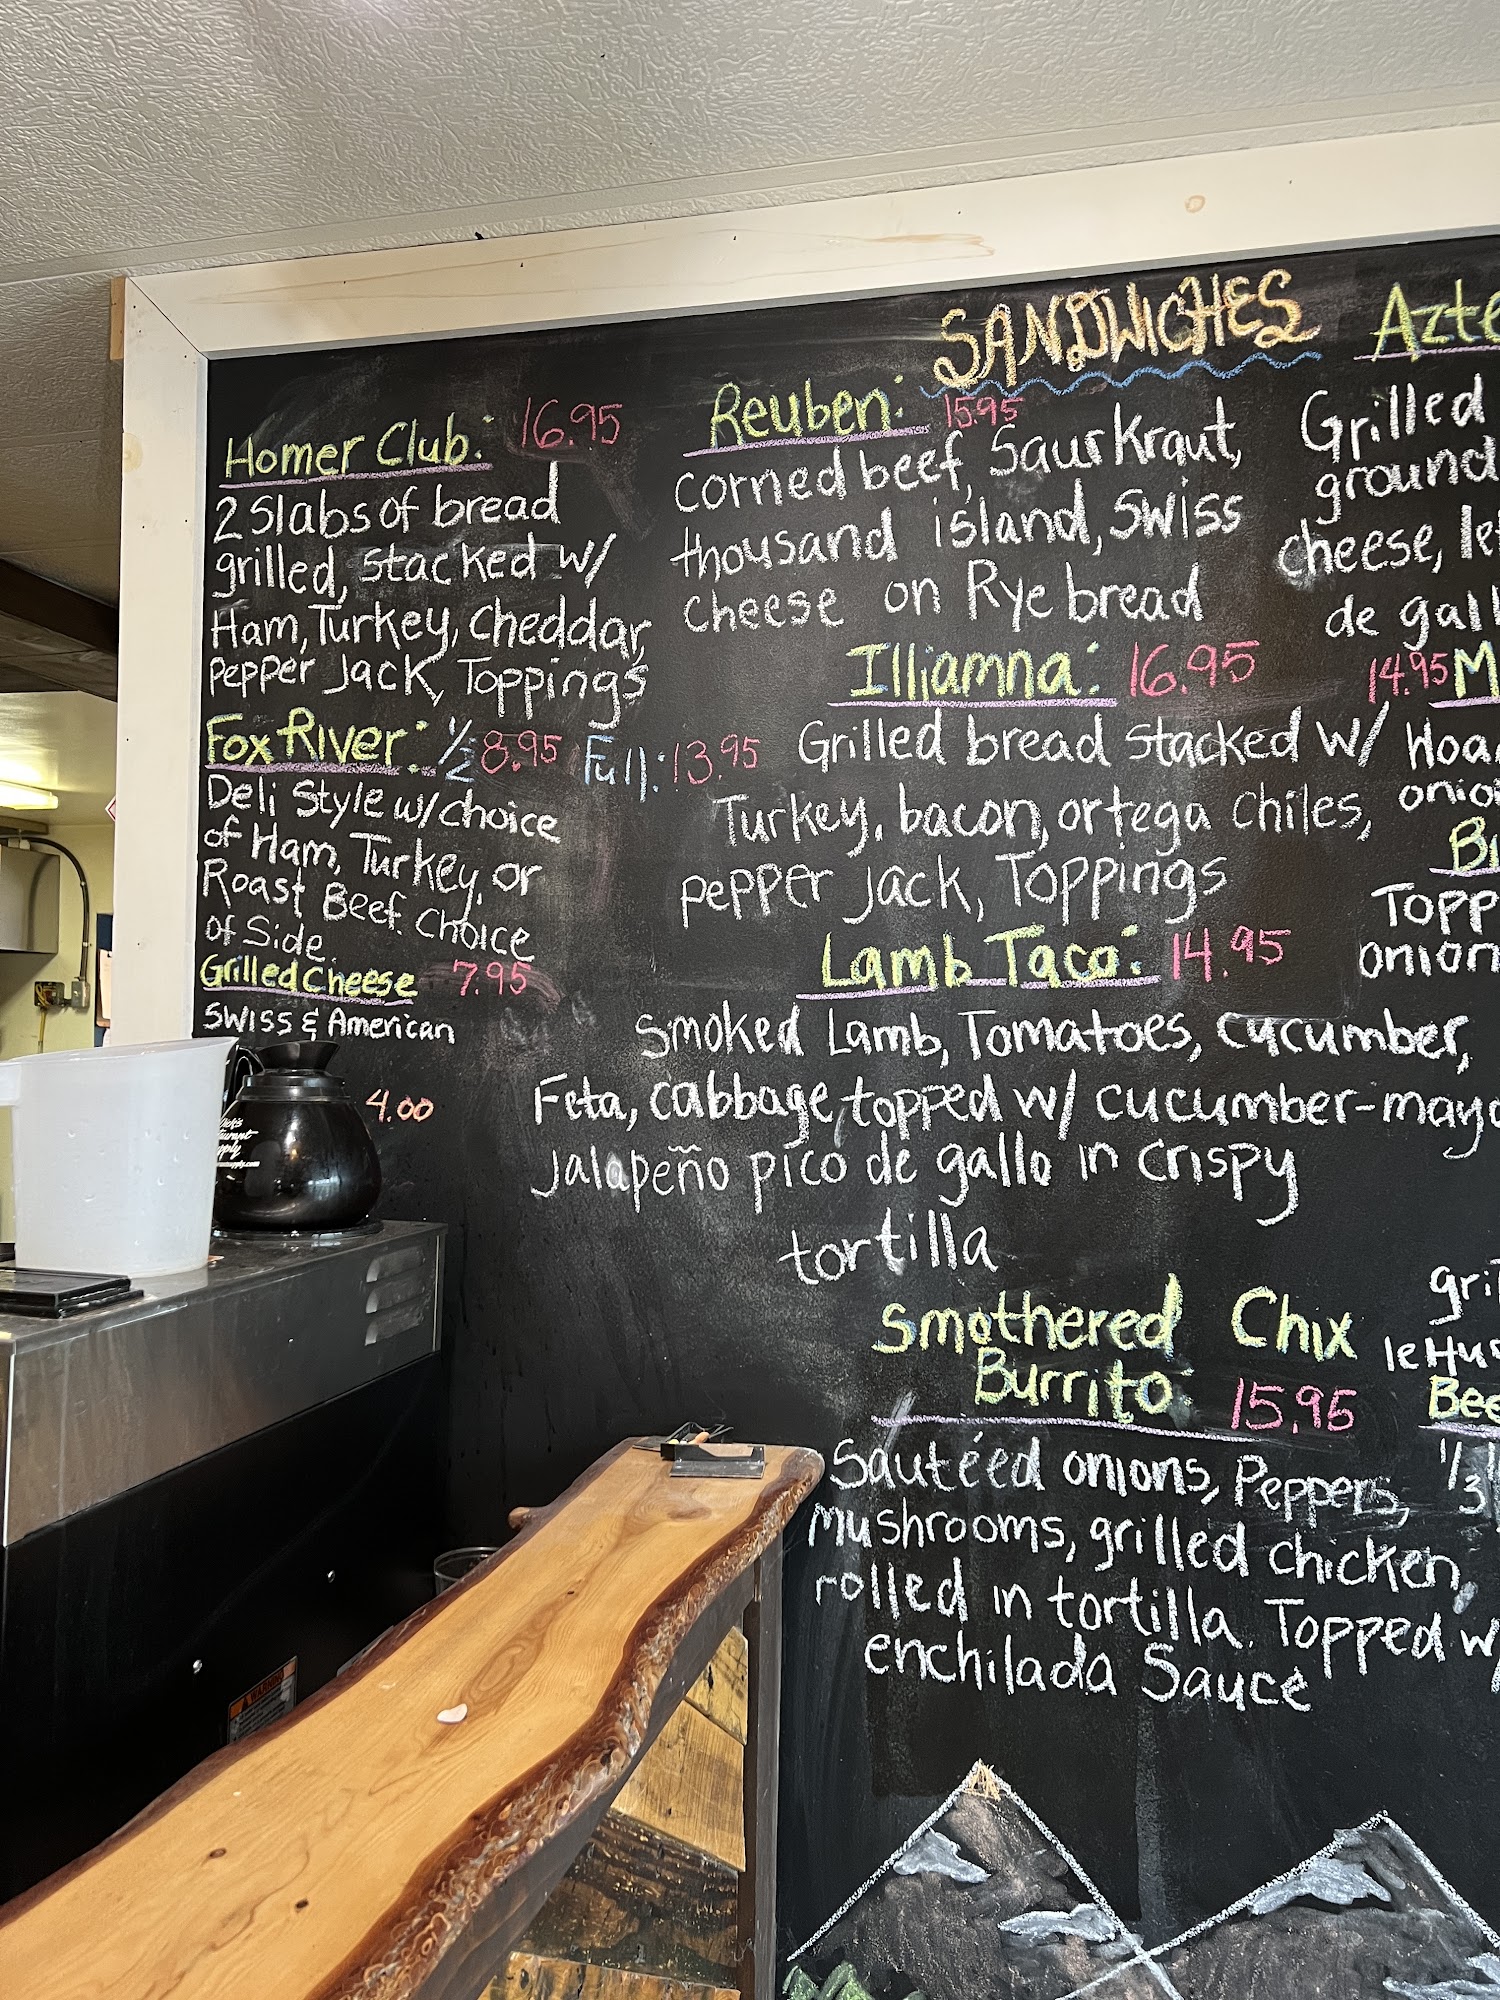 SANDWICHES
Homer Club: 16.95
2 Slabs of bread
grilled, stacked w/
Ham, Turkey, cheddar,
pepper Jack, Toppings
Fox River: 1/2 8.95 Full: 13.95
Deli Style w/choice
of Ham, Turkey, or
Roast Beef. Choice
of Side.
Grilled Cheese 7.95
Swiss & American
4.00
Reuben: 15.95
corned beef, SaurKraut,
thousand island, Swiss
cheese on Rye bread
Illiamna: 16.95
Grilled bread stacked w/
Turkey, bacon, ortega chiles,
pepper jack, Toppings
Lamb Taco: 14.95
Smoked Lamb, Tomatoes, cucumber,
Feta, cabbage, topped w/ cucumber-mayo
Jalapeño pico de gallo in crispy
tortilla
Smothered Chix
Burrito 15.95
Sautéed onions, Peppers,
mushrooms, grilled chicken,
rolled in tortilla. Topped w/
enchilada Sauce
Grilled
ground
cheese,
de
14.95
Topp
onion
1/3
WARNING